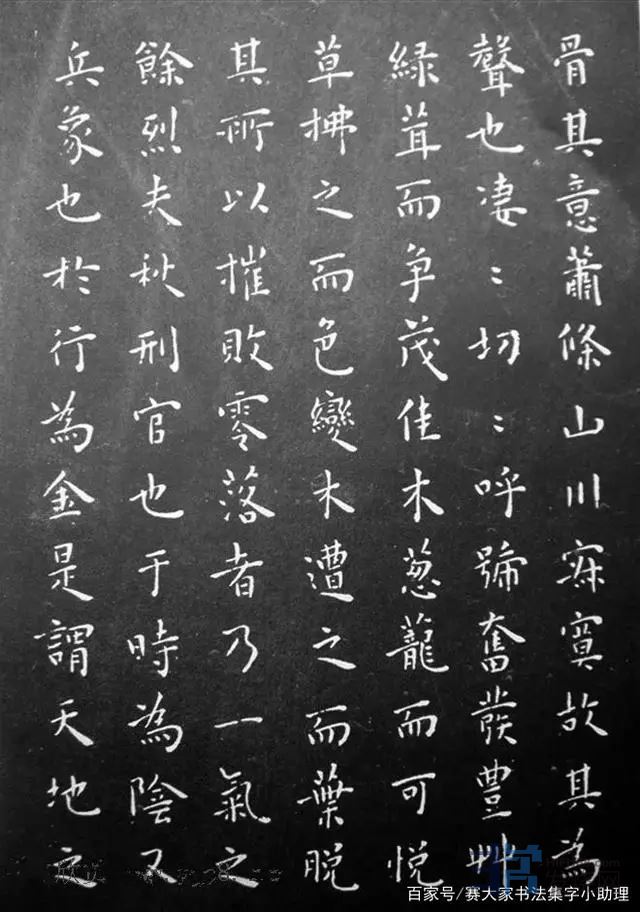 骨其意蕭條山川寂寞故其為
聲也凄〻切〻呼號奮發豐艸
緑茸而争茂佳木葱蘢而可悦
草拂之而色變木遭之而葉脱
其所以摧敗零落者乃一氣之
餘烈夫秋刑官也于時為陰又
兵象也於行為金是謂天地之
百家号/赛大家书法集字小助理